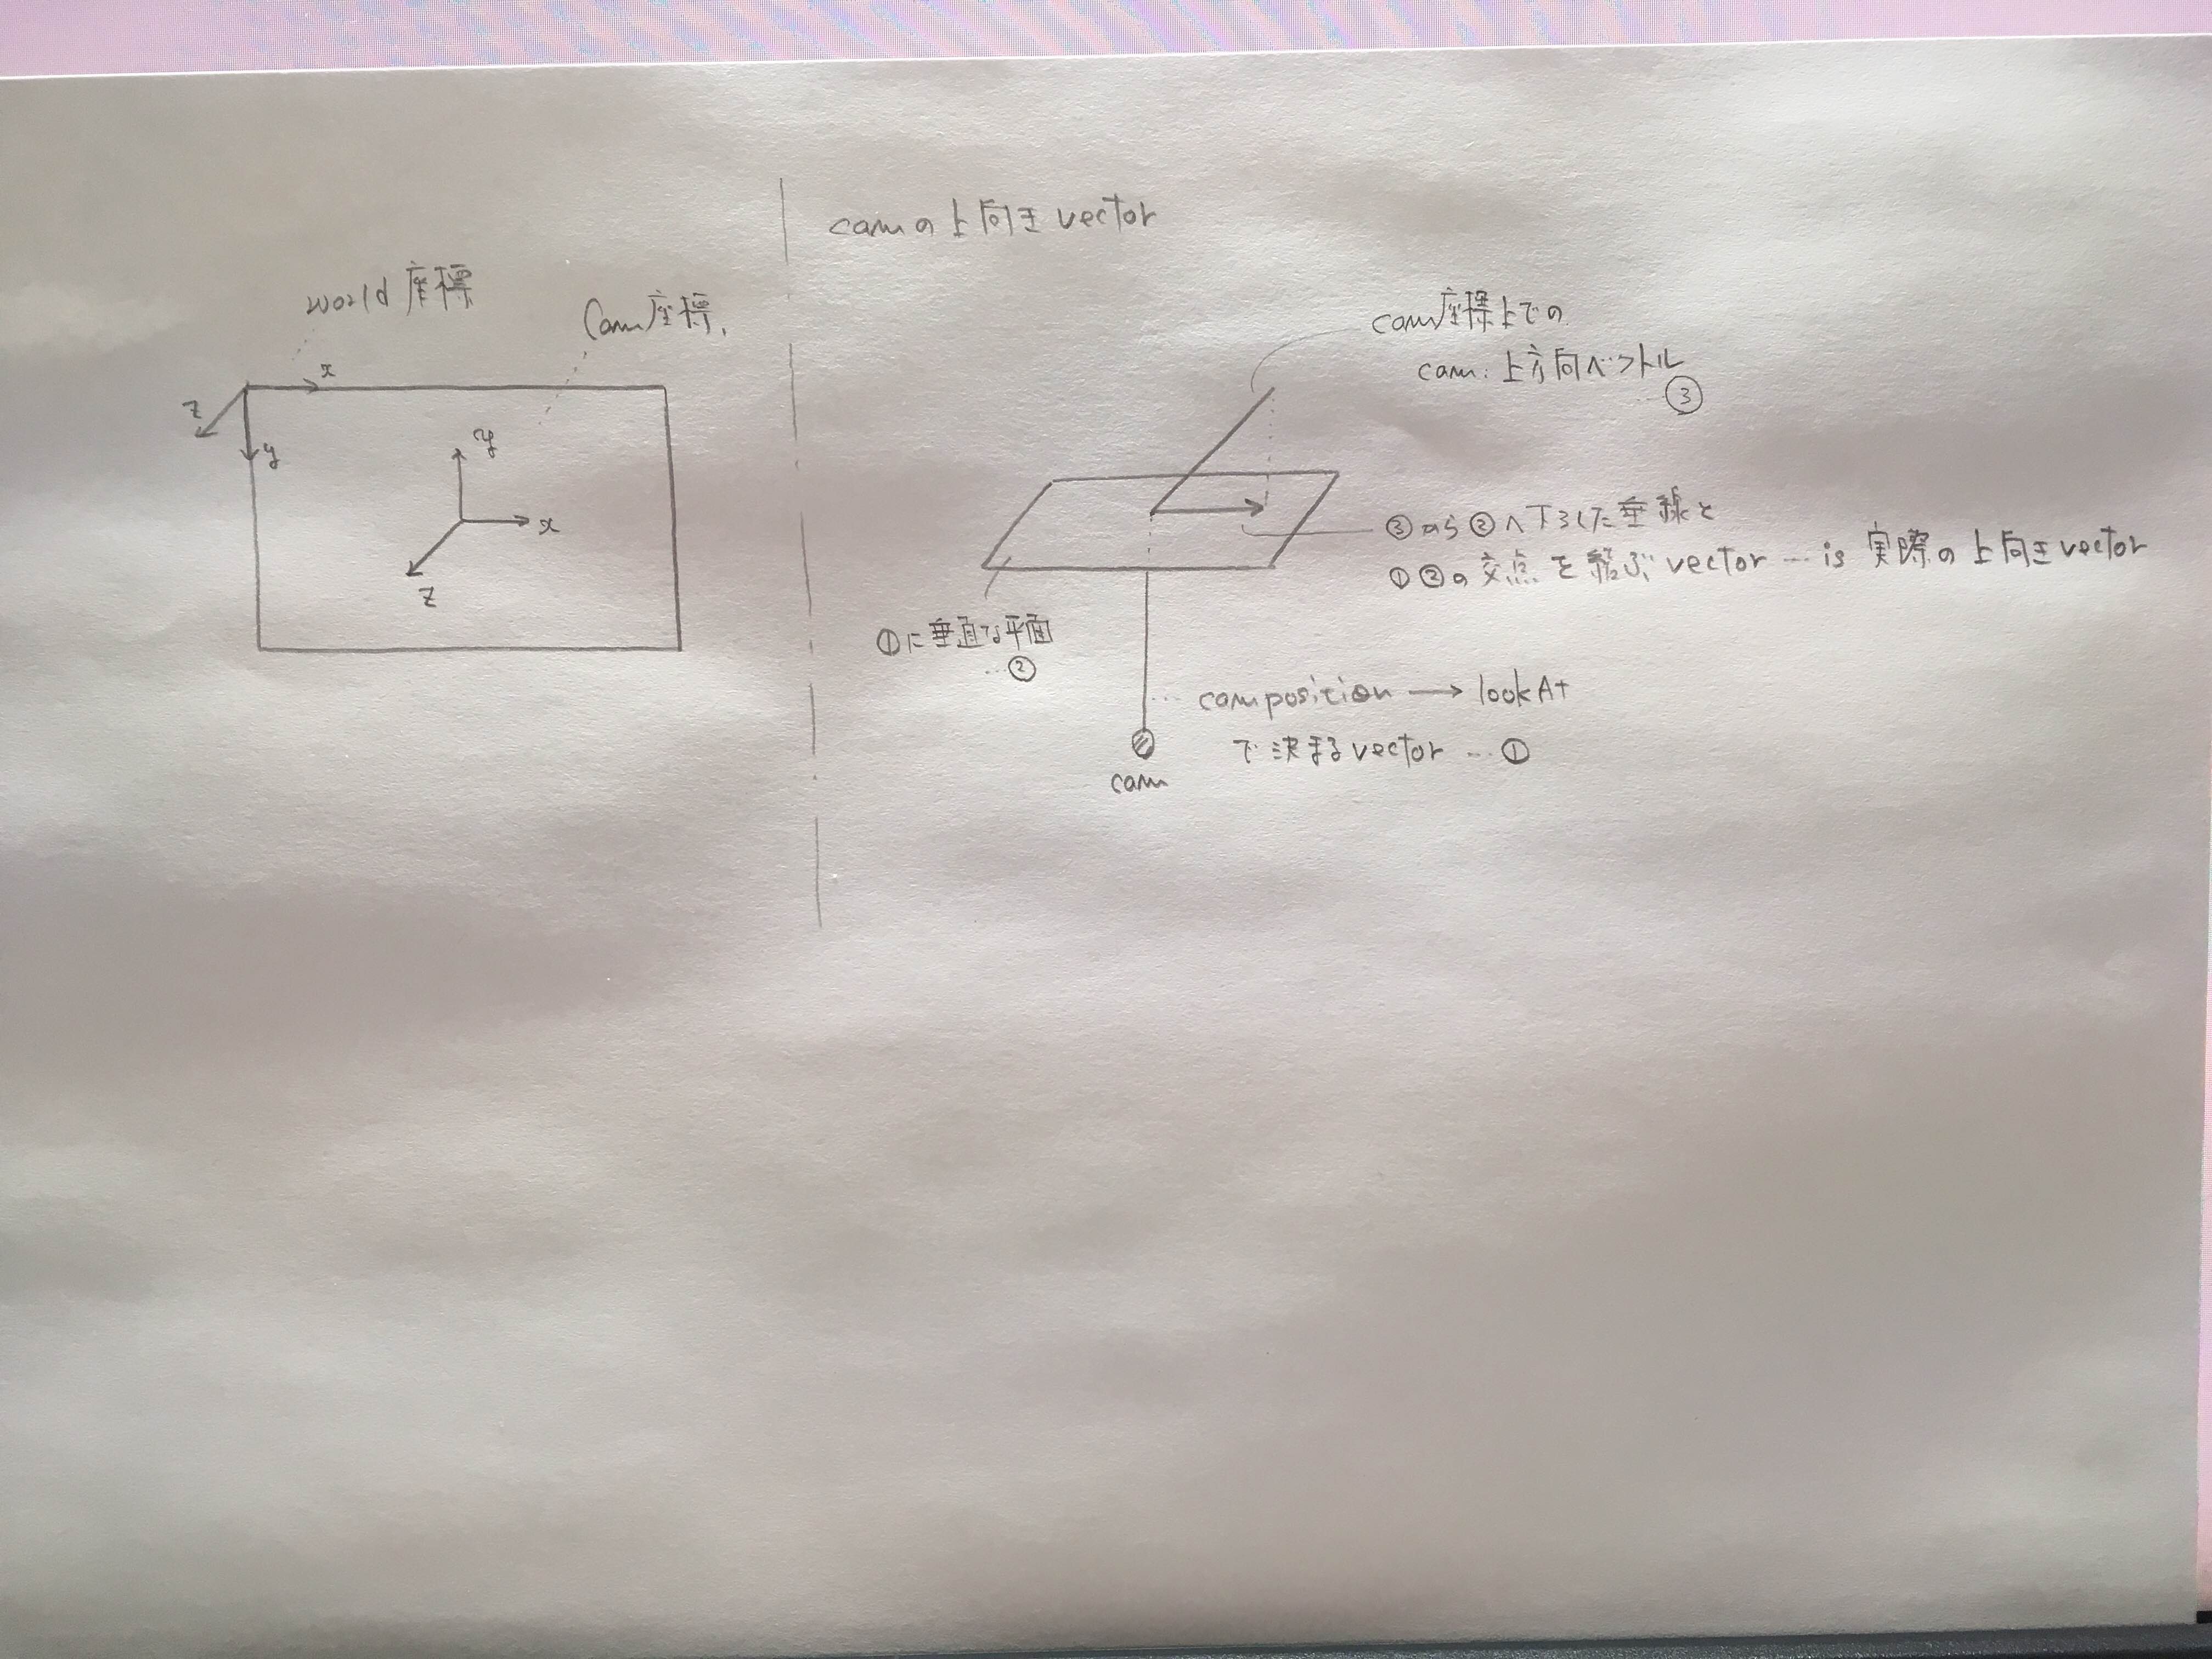 world 座標
Cam座標.
x
z
y
y
x
z
camの上向き vector
cam座標上での
cam: 上方向ベクトル
③
③から②へ下ろした垂線と
①②の交点を結ぶvector … is 実際の上向きvector
①に垂直な平面
…②
cam position → lookAt
で決まるvector … ①
cam